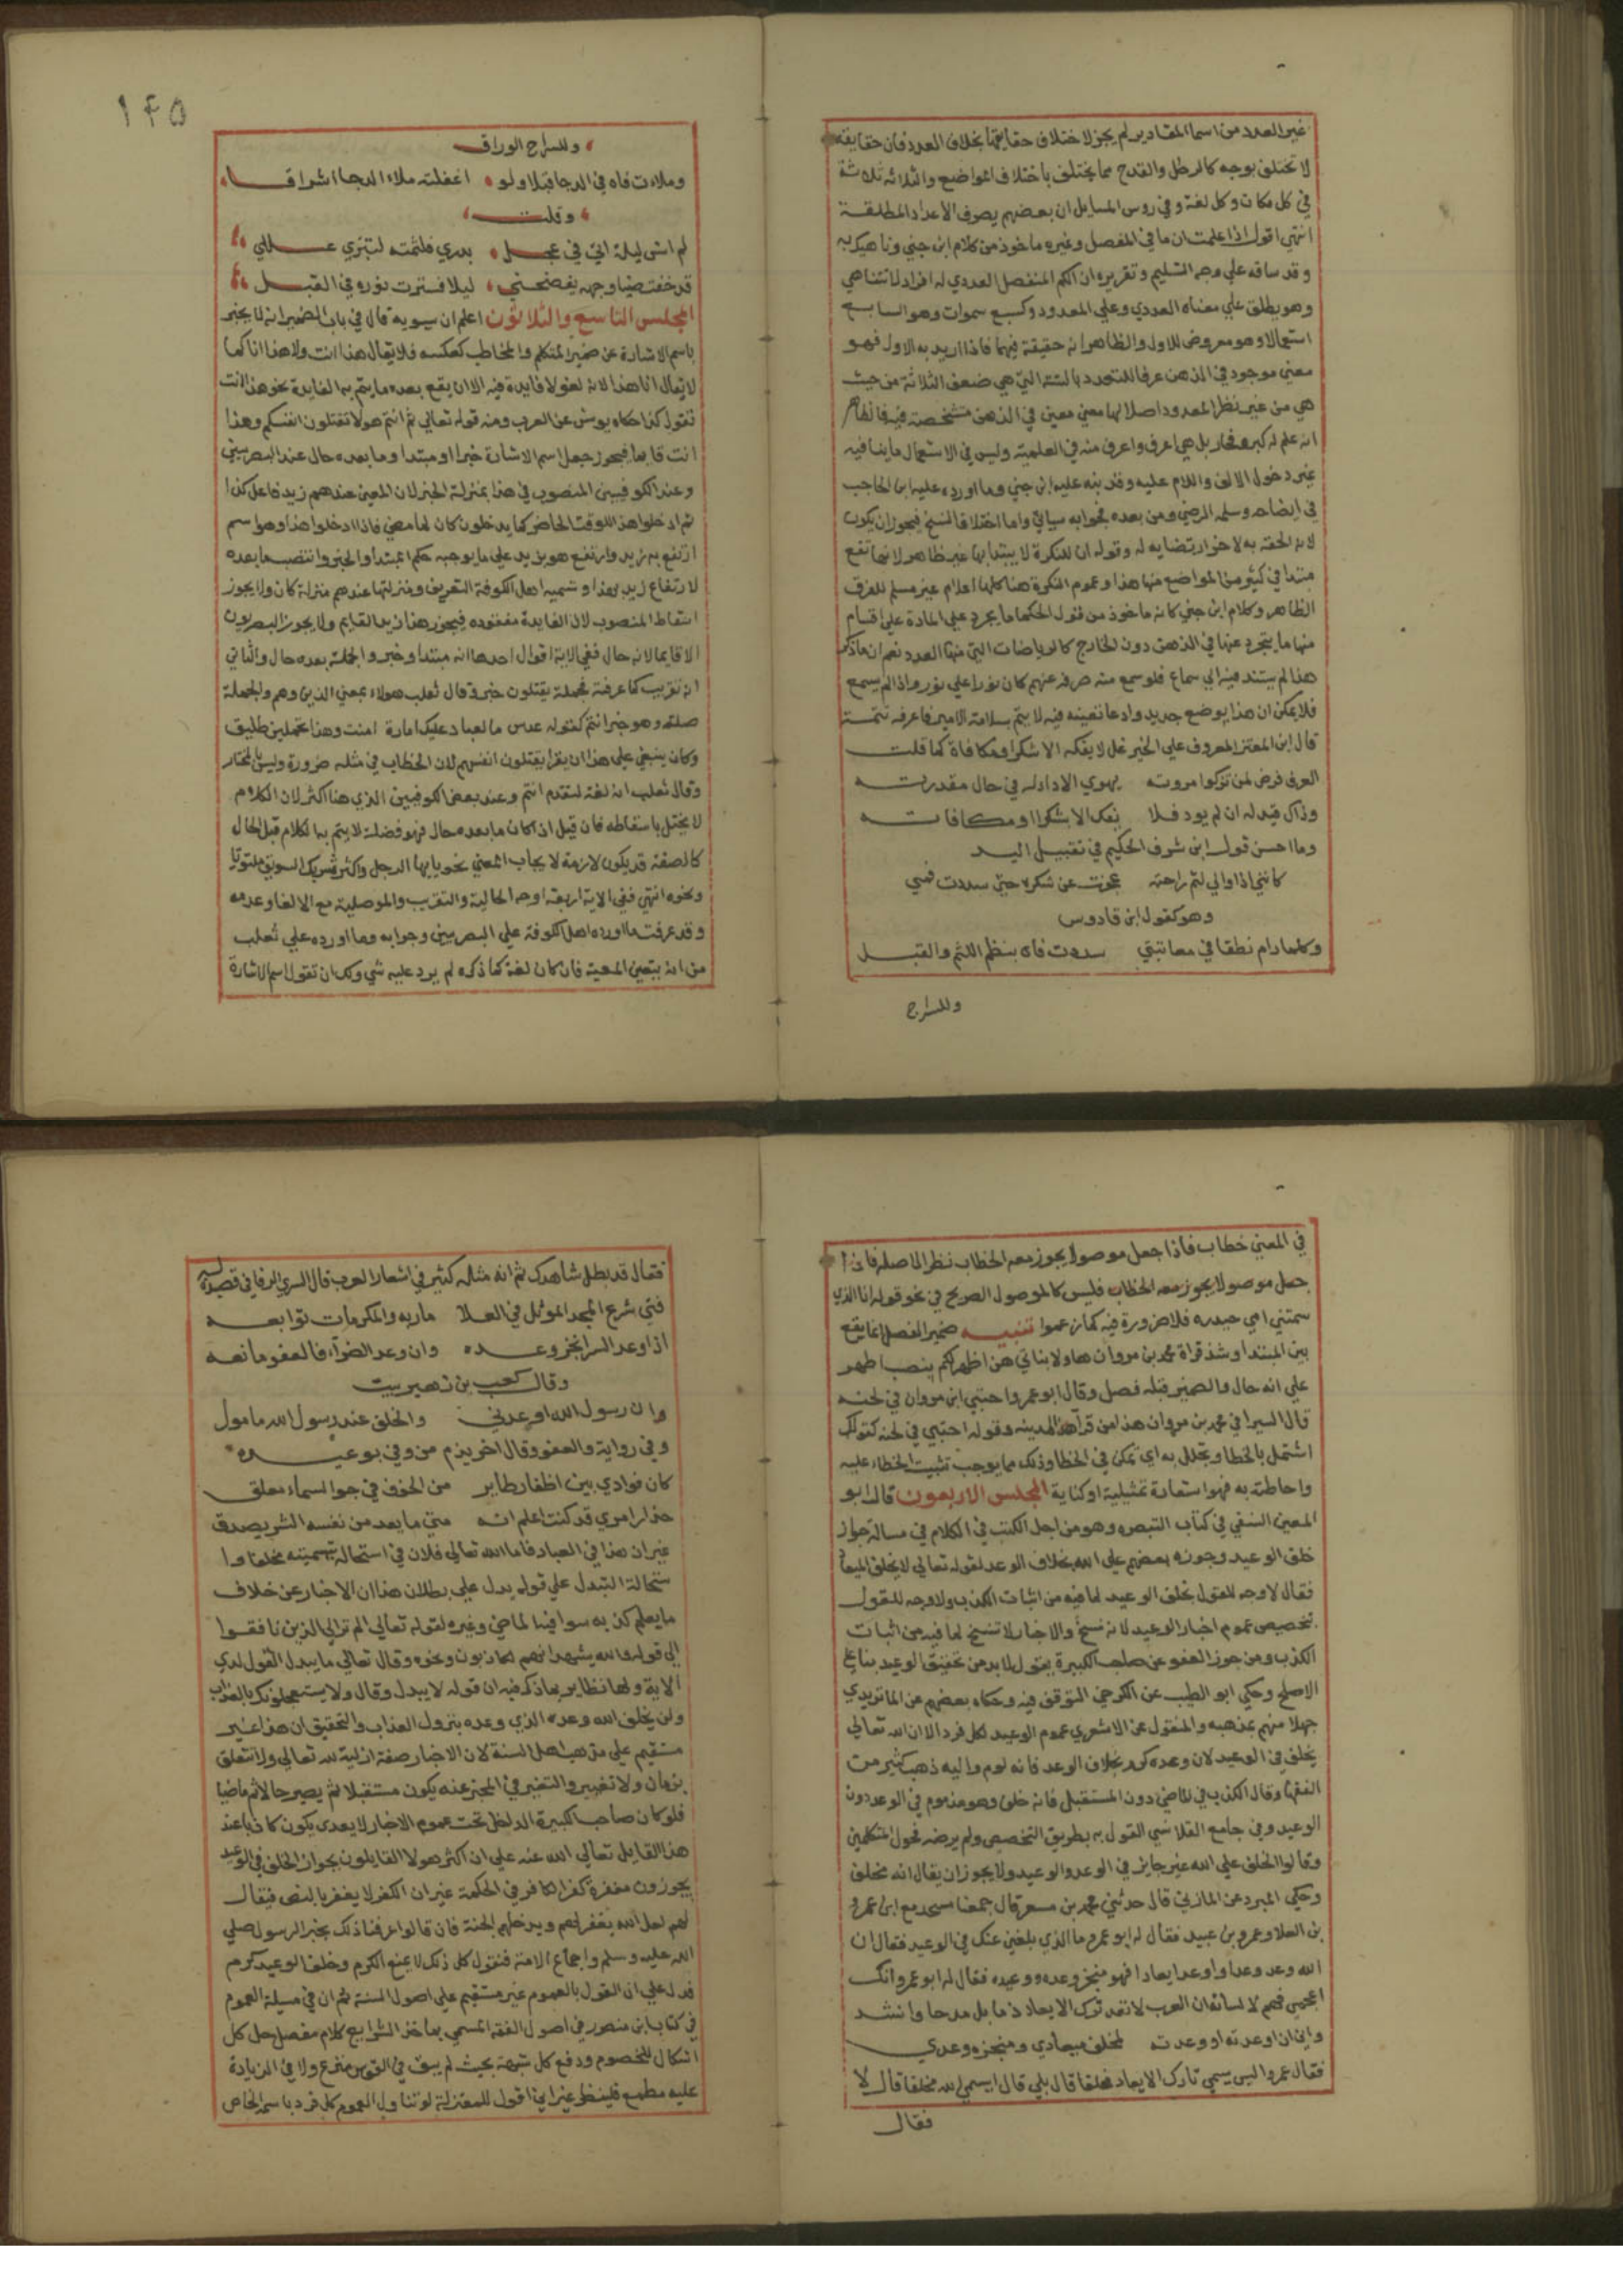 غير العدد من اسما المقادير لم يجز لاختلاف حقايقها بخلاف العدد فان حقايقه
لا تختلف بوجه كالرطل والقدح مما يختلف باختلاف المواضع والثلاثه ثلاثة
في كل مكان وكل لغة وفي روس المسايل ان بعضهم يصرف الاعداد المطلقة
انتهى اقول اذا علمت ان ما في المفصل وغيره ماخوذ من كلام ابن جني وناهيك به
وقد ساقه علي وجه التسليم وتقريره ان الكم المنفصل العددي له افراد لا تتناهي
وهو يطلق علي معناه العددي وعلي المعدود وكسبع سموات وهو السابع
استعمالا وهو معروض للاول والظاهر انه حقيقة فيهما فاذا اريد به الاول فهو
معني موجود في الذهن عرفا للتعدد بالستة التي هي ضعف الثلاثة من حيث
هي من غير نظر المعدود اصلا لها معني معين في الذهن مشخصة فيه فالظاهر
انه علم له بل هي اعرف واعرق منه في العلمية وليس في الاستعمال ما ينافيه
غير دخول الالف واللام عليه وقد نبه عليه ابن جني وما اورده عليه ابن الحاجب
في ايضاحه وسلمه الرضي ومن بعده فجوابه سياتي واما اختلاف النسخ فيجوز ان يكون
لانه الحقه به لاخر ارتضايه له وقوله ان النكرة لا يبتدا بها غير ظاهر لانها تقع
مبتدا في كثير من المواضع منها هذا وعموم النكرة هنا كلها اعلام غير مسلم للفرق
الظاهر وكلام ابن جني كانه ماخوذ من قول الحكما ما يجرد عن المادة علي اقسام
منها ما يتجرد عنها في الذهن دون الخارج كالرياضات التي منها العدد نعم ان ماذكر
هذا لم يستند فيه الي سماع فلو سمع منه صرفه عنهم كان نورا علي نور واذا لم يسمع
فلا يمكن ان هذا بوضع جديد وادعا تعيينه فيه لا يتم بسلامة الامير فاعرفه تتمة
قال ابن المعتز المعروف علي الخير غل لا يفكه الا شكر او مكافاة كما قلت
العرف قرض لمن تزكوا مروته يهوي الادا له في حال مقدرته
وذاك قيد له ان لم يود فلا يفكه الا شكر او مكافاته
وما احسن قول ابن شرف الحكيم في تقبيل اليد
كانني اذا والي لثم راحته عجزت عن شكره حتى سددت فمي
وهو كقول ابن قادوس
وكلما رام نطقا في معاتبتي سددت فاه بنظم اللثم والقبل
وللسراج
١٤٥
وللسراج الوراق
وملات فاه في الدجا قبلا ولو اغفلته ملاء الدجا اشراقا
وقلت
لم انس ليلة اتي في عجل بدري فلثمته لتبري عللي
قد خفت ضيا وجهه يفضحني ليلا فسترت نوره في القبل
المجلس التاسع والثلاثون اعلم ان سيبويه قال في باب الضمير انه لا يخبر
باسم الاشارة عن ضمير المتكلم والمخاطب كعكسه فلا يقال هذا انت ولا هذا انا كما
لا يقال انا هذا لانه لغو لا فايدة فيه الا ان يقع بعده ما يتم به الفايدة نحو هذا انت
تقول كذا حكاه يونس عن العرب ومنه قوله تعالي ثم انتم هولا تقتلون انفسكم وهذا
انت قايما فيجوز جعل اسم الاشارة خبرا او مبتدا وما بعده حال عند البصريين
وعند الكوفيين المنصوب في هذا بمنزلة الخبر لان المعني عندهم زيد فاعل كذا
ثم ادخلوا هذا للوقت الحاضر كما يدخلون كان لما مضي فاذا ادخلوا هذا وهو اسم
ارتفع به زيد وارتفع هو بزيد علي ما يوجبه حكم المبتدا والخبر وانتصب ما بعده
لارتفاع زيد بهذا وتسميه اهل الكوفة التقريب ومنزلتها عندهم منزلة كان ولا يجوز
اسقاط المنصوب لان الفايدة مفقوده فيجوز هذا زيد القايم ولا يجوز البصريون
الا قايما لانه حال ففي الاية اقوال احدها انه مبتدا وخبر والجملة بعده حال والثاني
انه تقريب كما عرفته فجملة يقتلون خبر وقال ثعلب هولاء بمعني الذين وهم والجملة
صلته وهو خبر انتم كقوله عدس ما لعباد عليك امارة امنت وهذا تحملين طليق
وكان ينبغي علي هذا ان يقرا يقتلون انفسهم لان الخطاب في مثله ضرورة وليس بالمختار
وقال ثعلب انه لغة لتقدم انتم وعند بعض الكوفيين الذي هنا اكثر لان الكلام
لا يختل باسقاطه فان قيل اذا كان ما بعده حال فهو فضلة لا يتم بها الكلام قيل الحال
كالصفة قد يكون لازمة لا يجاب المعني نحو يا ايها الرجل واكثر شربك السويق ملتوتا
ونحوه انتهي ففي الاية اربعة اوجه الحالية والتقريب والموصلية مع الالغا وعدمه
وقد عرفت ما اورده اهل الكوفة علي البصريين وجوابه وما اورده علي ثعلب
من انه يتعين المعية فان كان لغة كما ذكره لم يرد عليه شي ولك ان تقول اسم الاشارة
في المعني خطاب فاذا جعل موصولا يجوز معه الخطاب نظر الاصله فاذا
جعل موصولا يجوز معه الخطاب فليس كالموصول الصريح في نحو قوله انا الذي
سمتني امي حيدره فلا ضرورة فيه كما زعموا تنبيه ضمير الفصل انما يقع
بين المبتدا وشذ قراة محمد بن مروان هاولا بناتي هن اطهر لكم بنصب اطهر
علي انه حال والضمير قبله فصل وقال ابو عمروا احتبي ابن مروان في لحنه
قال السيرافي محمد بن مروان هذا من قرآء اهل المدينه وقوله احتبي في لحنه كقولك
اشتمل بالخطا وتجلل به اي تمكن في الخطا وذلك مما يوجب تثبيت الخطاء عليه
واحاطته به فهو استعارة تمثيلية او كناية المجلس الاربعون قال ابو
المعين النسفي في كتاب التبصره وهو من اجل الكتب في الكلام في مسالة جواز
خلف الوعيد وجوزه بعضهم علي الله بخلاف الوعد لقوله تعالي لا يخلف الميعاد
فقال لا وجه للقول بخلف الوعيد لما فيه من اثبات الكذب ولا وجه للقول
بتخصيص عموم اخبار الوعيد لانه نسخ والاخبار لا تنسخ لما فيه من اثبات
الكذب ومن جوز العفو عن صاحب الكبيرة يقول لا بد من تحقيق الوعيد بنا علي
الاصلح وحكي ابو الطيب عن الكرخي التوقف فيه وحكاه بعضهم عن الماتريدي
جهلا منهم بمذهبه والمنقول عن الاشعري عموم الوعيد لكل فرد الا ان الله تعالي
يخلف في الوعيد لان وعده كرم بخلاف الوعد فانه لوم واليه ذهب كثير من
الفقها وقال الكذب في الماضي دون المستقبل فانه خلف وهو مذموم في الوعد دون
الوعيد وفي جامع القلانسي القول به بطريق التخصيص ولم يرضه فحول المتكلمين
وقالوا الخلف علي الله غير جايز في الوعد والوعيد ولا يجوز ان يقال انه مخلف
وحكي المبرد عن المازني قال حدثني محمد بن مسعر قال جمعنا مسجد مع ابي عمرو
بن العلا وعمرو بن عبيد فقال له ابو عمرو ما الذي بلغني عنك في الوعيد فقال ان
الله وعد وعدا واوعد ايعادا فهو منجز وعده ووعيده فقال له ابو عمرو انك
اعجمي فهم لا لسانا فان العرب لا تعد ترك الايعاد ذما بل مدحا وانشد
واني ان اوعدته او وعدته لمخلف ميعادي ومنجزه وعدي
فقال عمرو اليس يسمي تارك الايعاد مخلفا قال بلي قال ايسمي الله مخلفا قال لا
فقال
فقال قد بطل شاهدك ثم انه مثاله كثير في اشعار العرب قال السري الرفا في قصيدة له
فتي شرع المجد الموثل في العلا ماربه والمكرمات توابعه
اذا وعد السرا انجز وعده وان وعد الضرآء فالعفو مانعه
وقال كعب بن زهير بيت
وان رسول الله اوعدني والخلف عند رسول الله مامول
وفي رواية والعفو وقال اخر يذم من وفي بوعيده
كان فوادي بين اظفار طاير من الخوف في جو السماء معلق
حذار امري قد كنت اعلم انه متي ما يعد من نفسه الشر يصدق
غير ان هذا في العباد فاما الله تعالي فلان في استحالة تسميته مخلفا وا
ستحالة التبدل علي قوله يدل علي بطلان هذا ان الاخبار عن خلاف
ما يعلم كذبه سوا فيه الماضي وغيره لقوله تعالي الم تر الي الذين نافقوا
الي قوله والله يشهد انهم لكاذبون ونحوه وقال تعالي ما يبدل القول لدي
الاية ولها نظاير بما ذكر فيه ان قوله لا يبدل وقال ولا يستعجلونك بالعذاب
ولن يخلف الله وعده الذي وعده بنزول العذاب والتحقيق ان هذا غير
مستقيم علي مذهب اهل السنة لان الاخبار صفة ازلية لله تعالي ولا تتعلق
بزمان ولا تغيير والتغير في المخبر عنه يكون مستقبلا ثم يصير حالا ثم ماضيا
فلو كان صاحب الكبيرة الداخل تحت عموم الاخبار لا يعدي يكون كاذبا عند
هذا القايل تعالي الله عنه علي ان اكثر هولا القايلون بجواز الخلف في الوعيد
يجوزون مغفرة كفر الكافر في الحكمة غير ان الكفر لا يغفر بالنص فيقال
لهم لعل الله يغفر لهم ويدخلهم الجنة فان قالوا عرفنا ذلك بخبر الرسول صلي
الله عليه وسلم واجماع الامة فنقول كل ذلك لا يمنع الكرم وخلف الوعيد كرم
فدل علي ان القول بالعموم غير مستقيم علي اصول السنة ثم ان في مسيلة العموم
في كتاب ابن منصور في اصول الفقه المسمي بماخذ الشرايع كلام مفصل حل كل
اشكال للخصوم ودفع كل شبهة بحيث لم يبق في القوس منزع ولا في الزيادة
عليه مطمع فلينظر غير اني اقول للمعتزلة لو تناول العموم كل فرد باسمه الخاص